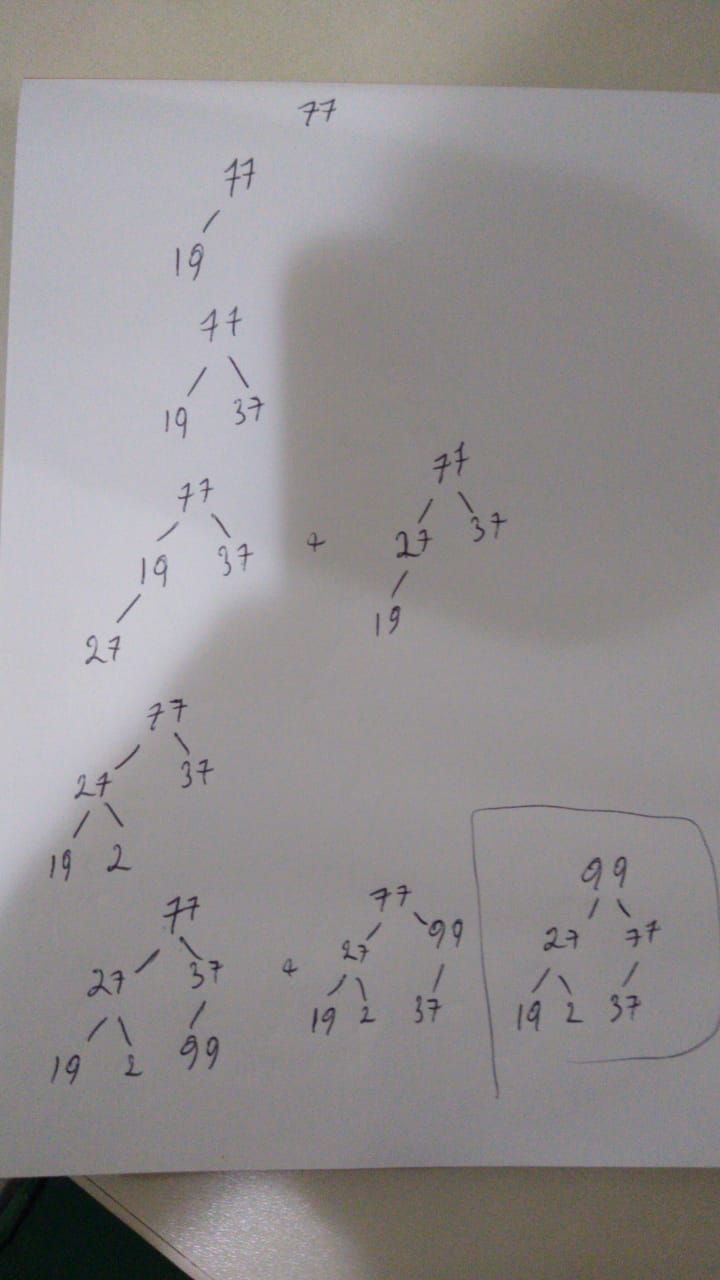 77
77
19
77
19 37
77
19 37
27
+
77
27 37
19
77
27 37
19 2
77
27 37
19 2 99
+
77
27 99
19 2 37
99
27 77
19 2 37